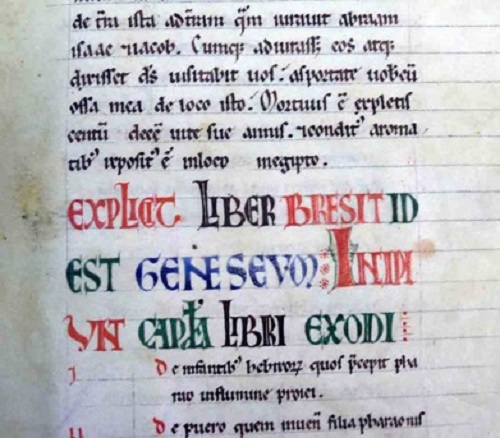 de t̄ra ista ad t̄ram q̄m iurauit abraam
isaac ⁊ iacob. Cumq; adiurass; eos atq;
dixisset d̄s uisitabit uos. asportate uobcū
ossa mea de loco isto. Mortuus ē expletis
centū decē uite sue annis. ⁊ condit᷒ aroma
tib᷒ reposit᷒ ē inloco inegipto.
EXPLICIT LIBER BRESIT ID
EST GENESEVOM INCIPI
UNT CAPIT̄LA LIBRI EXODI
I De infantib᷒ hebreoꝝ quos p̄cepit pha
rao influmine proici.
II De puero quem inuen̄ filia pharaonis